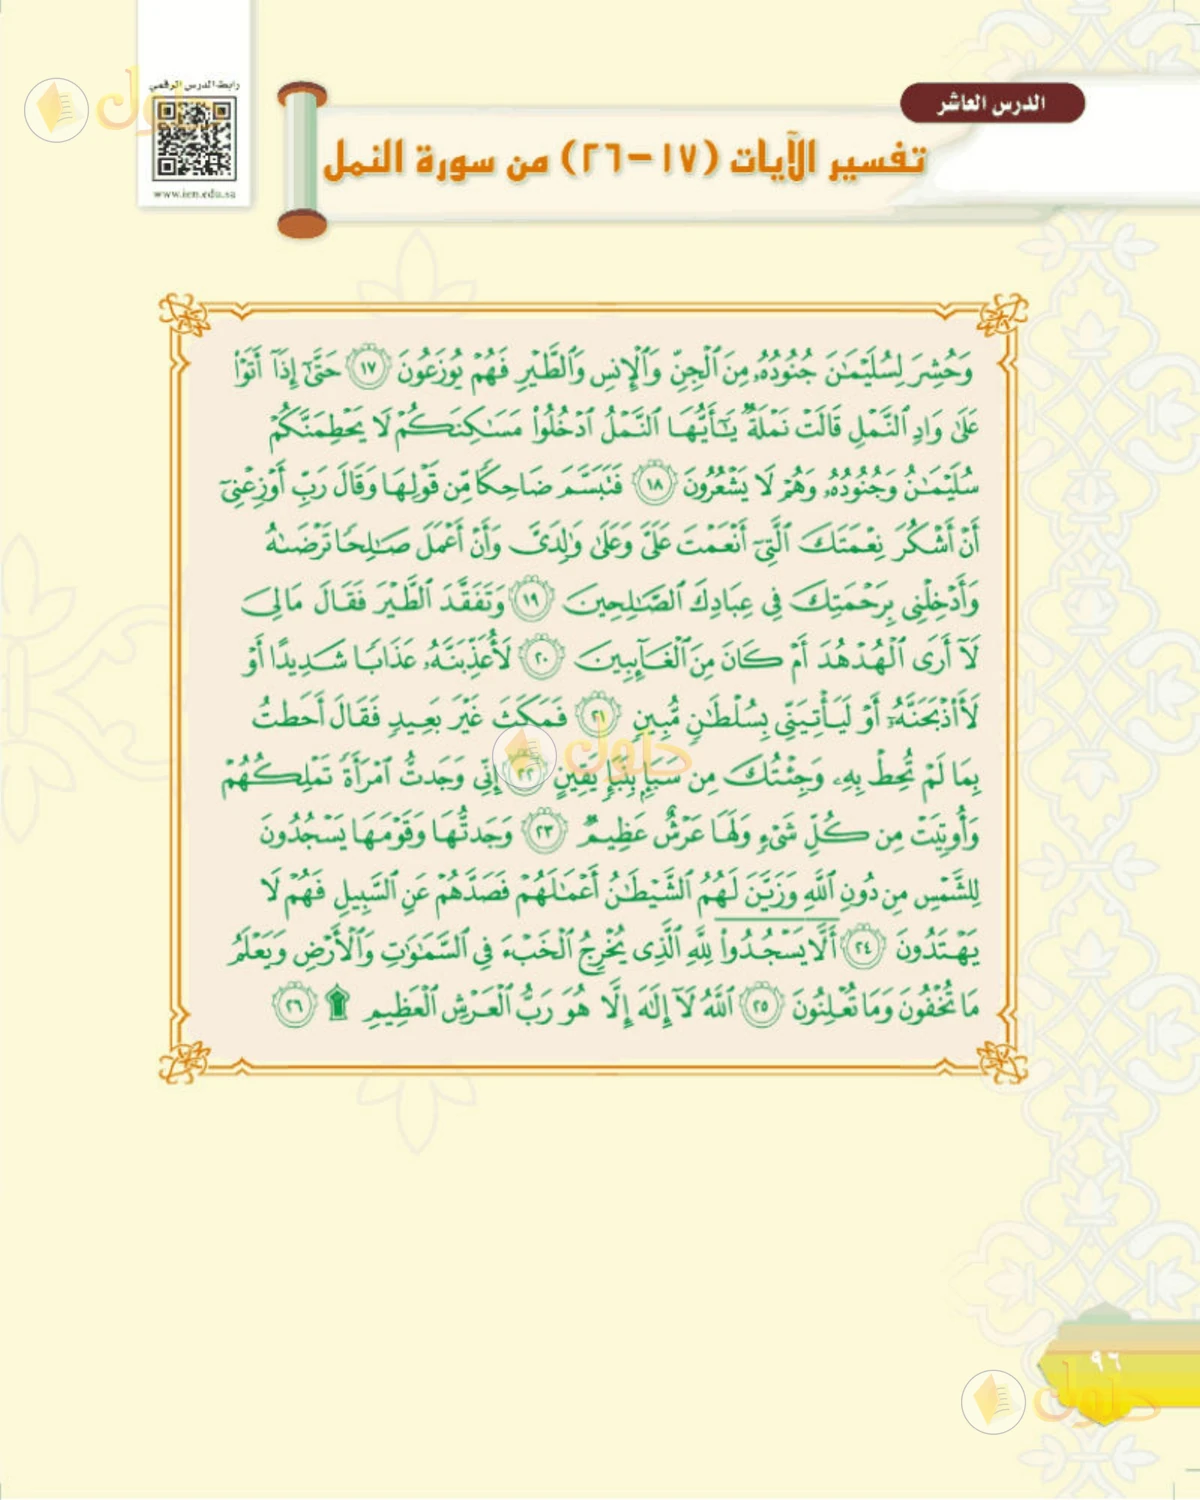 رابط الدرس الرقمي
www.ien.edu.sa
حلول
الدرس العاشر
تفسير الآيات (١٧-٢٦) من سورة النمل
وَحُشِرَ لِسُلَيْمَٰنَ جُنُودُهُۥ مِنَ ٱلْجِنِّ وَٱلْإِنسِ وَٱلطَّيْرِ فَهُمْ يُوزَعُونَ ١٧ حَتَّىٰٓ إِذَآ أَتَوْا۟
عَلَىٰ وَادِ ٱلنَّمْلِ قَالَتْ نَمْلَةٌ يَٰٓأَيُّهَا ٱلنَّمْلُ ٱدْخُلُوا۟ مَسَٰكِنَكُمْ لَا يَحْطِمَنَّكُمْ
سُلَيْمَٰنُ وَجُنُودُهُۥ وَهُمْ لَا يَشْعُرُونَ ١٨ فَتَبَسَّمَ ضَاحِكًا مِّن قَوْلِهَا وَقَالَ رَبِّ أَوْزِعْنِىٓ
أَنْ أَشْكُرَ نِعْمَتَكَ ٱلَّتِىٓ أَنْعَمْتَ عَلَىَّ وَعَلَىٰ وَٰلِدَىَّ وَأَنْ أَعْمَلَ صَٰلِحًا تَرْضَىٰهُ
وَأَدْخِلْنِى بِرَحْمَتِكَ فِى عِبَادِكَ ٱلصَّٰلِحِينَ ١٩ وَتَفَقَّدَ ٱلطَّيْرَ فَقَالَ مَالِىَ
لَآ أَرَى ٱلْهُدْهُدَ أَمْ كَانَ مِنَ ٱلْغَآئِبِينَ ٢٠ لَأُعَذِّبَنَّهُۥ عَذَابًا شَدِيدًا أَوْ
لَأَا۟ذْبَحَنَّهُۥٓ أَوْ لَيَأْتِيَنِّى بِسُلْطَٰنٍ مُّبِينٍ ٢١ فَمَكَثَ غَيْرَ بَعِيدٍ فَقَالَ أَحَطتُ
بِمَا لَمْ تُحِطْ بِهِۦ وَجِئْتُكَ مِن سَبَإٍۭ بِنَبَإٍ يَقِينٍ ٢٢ إِنِّى وَجَدتُّ ٱمْرَأَةً تَمْلِكُهُمْ
وَأُوتِيَتْ مِن كُلِّ شَىْءٍ وَلَهَا عَرْشٌ عَظِيمٌ ٢٣ وَجَدتُّهَا وَقَوْمَهَا يَسْجُدُونَ
لِلشَّمْسِ مِن دُونِ ٱللَّهِ وَزَيَّنَ لَهُمُ ٱلشَّيْطَٰنُ أَعْمَٰلَهُمْ فَصَدَّهُمْ عَنِ ٱلسَّبِيلِ فَهُمْ لَا
يَهْتَدُونَ ٢٤ أَلَّا يَسْجُدُوا۟ لِلَّهِ ٱلَّذِى يُخْرِجُ ٱلْخَبْءَ فِى ٱلسَّمَٰوَٰتِ وَٱلْأَرْضِ وَيَعْلَمُ
مَا تُخْفُونَ وَمَا تُعْلِنُونَ ٢٥ ٱللَّهُ لَآ إِلَٰهَ إِلَّا هُوَ رَبُّ ٱلْعَرْشِ ٱلْعَظِيمِ ۩ ٢٦
حلول
٩٦
حلول